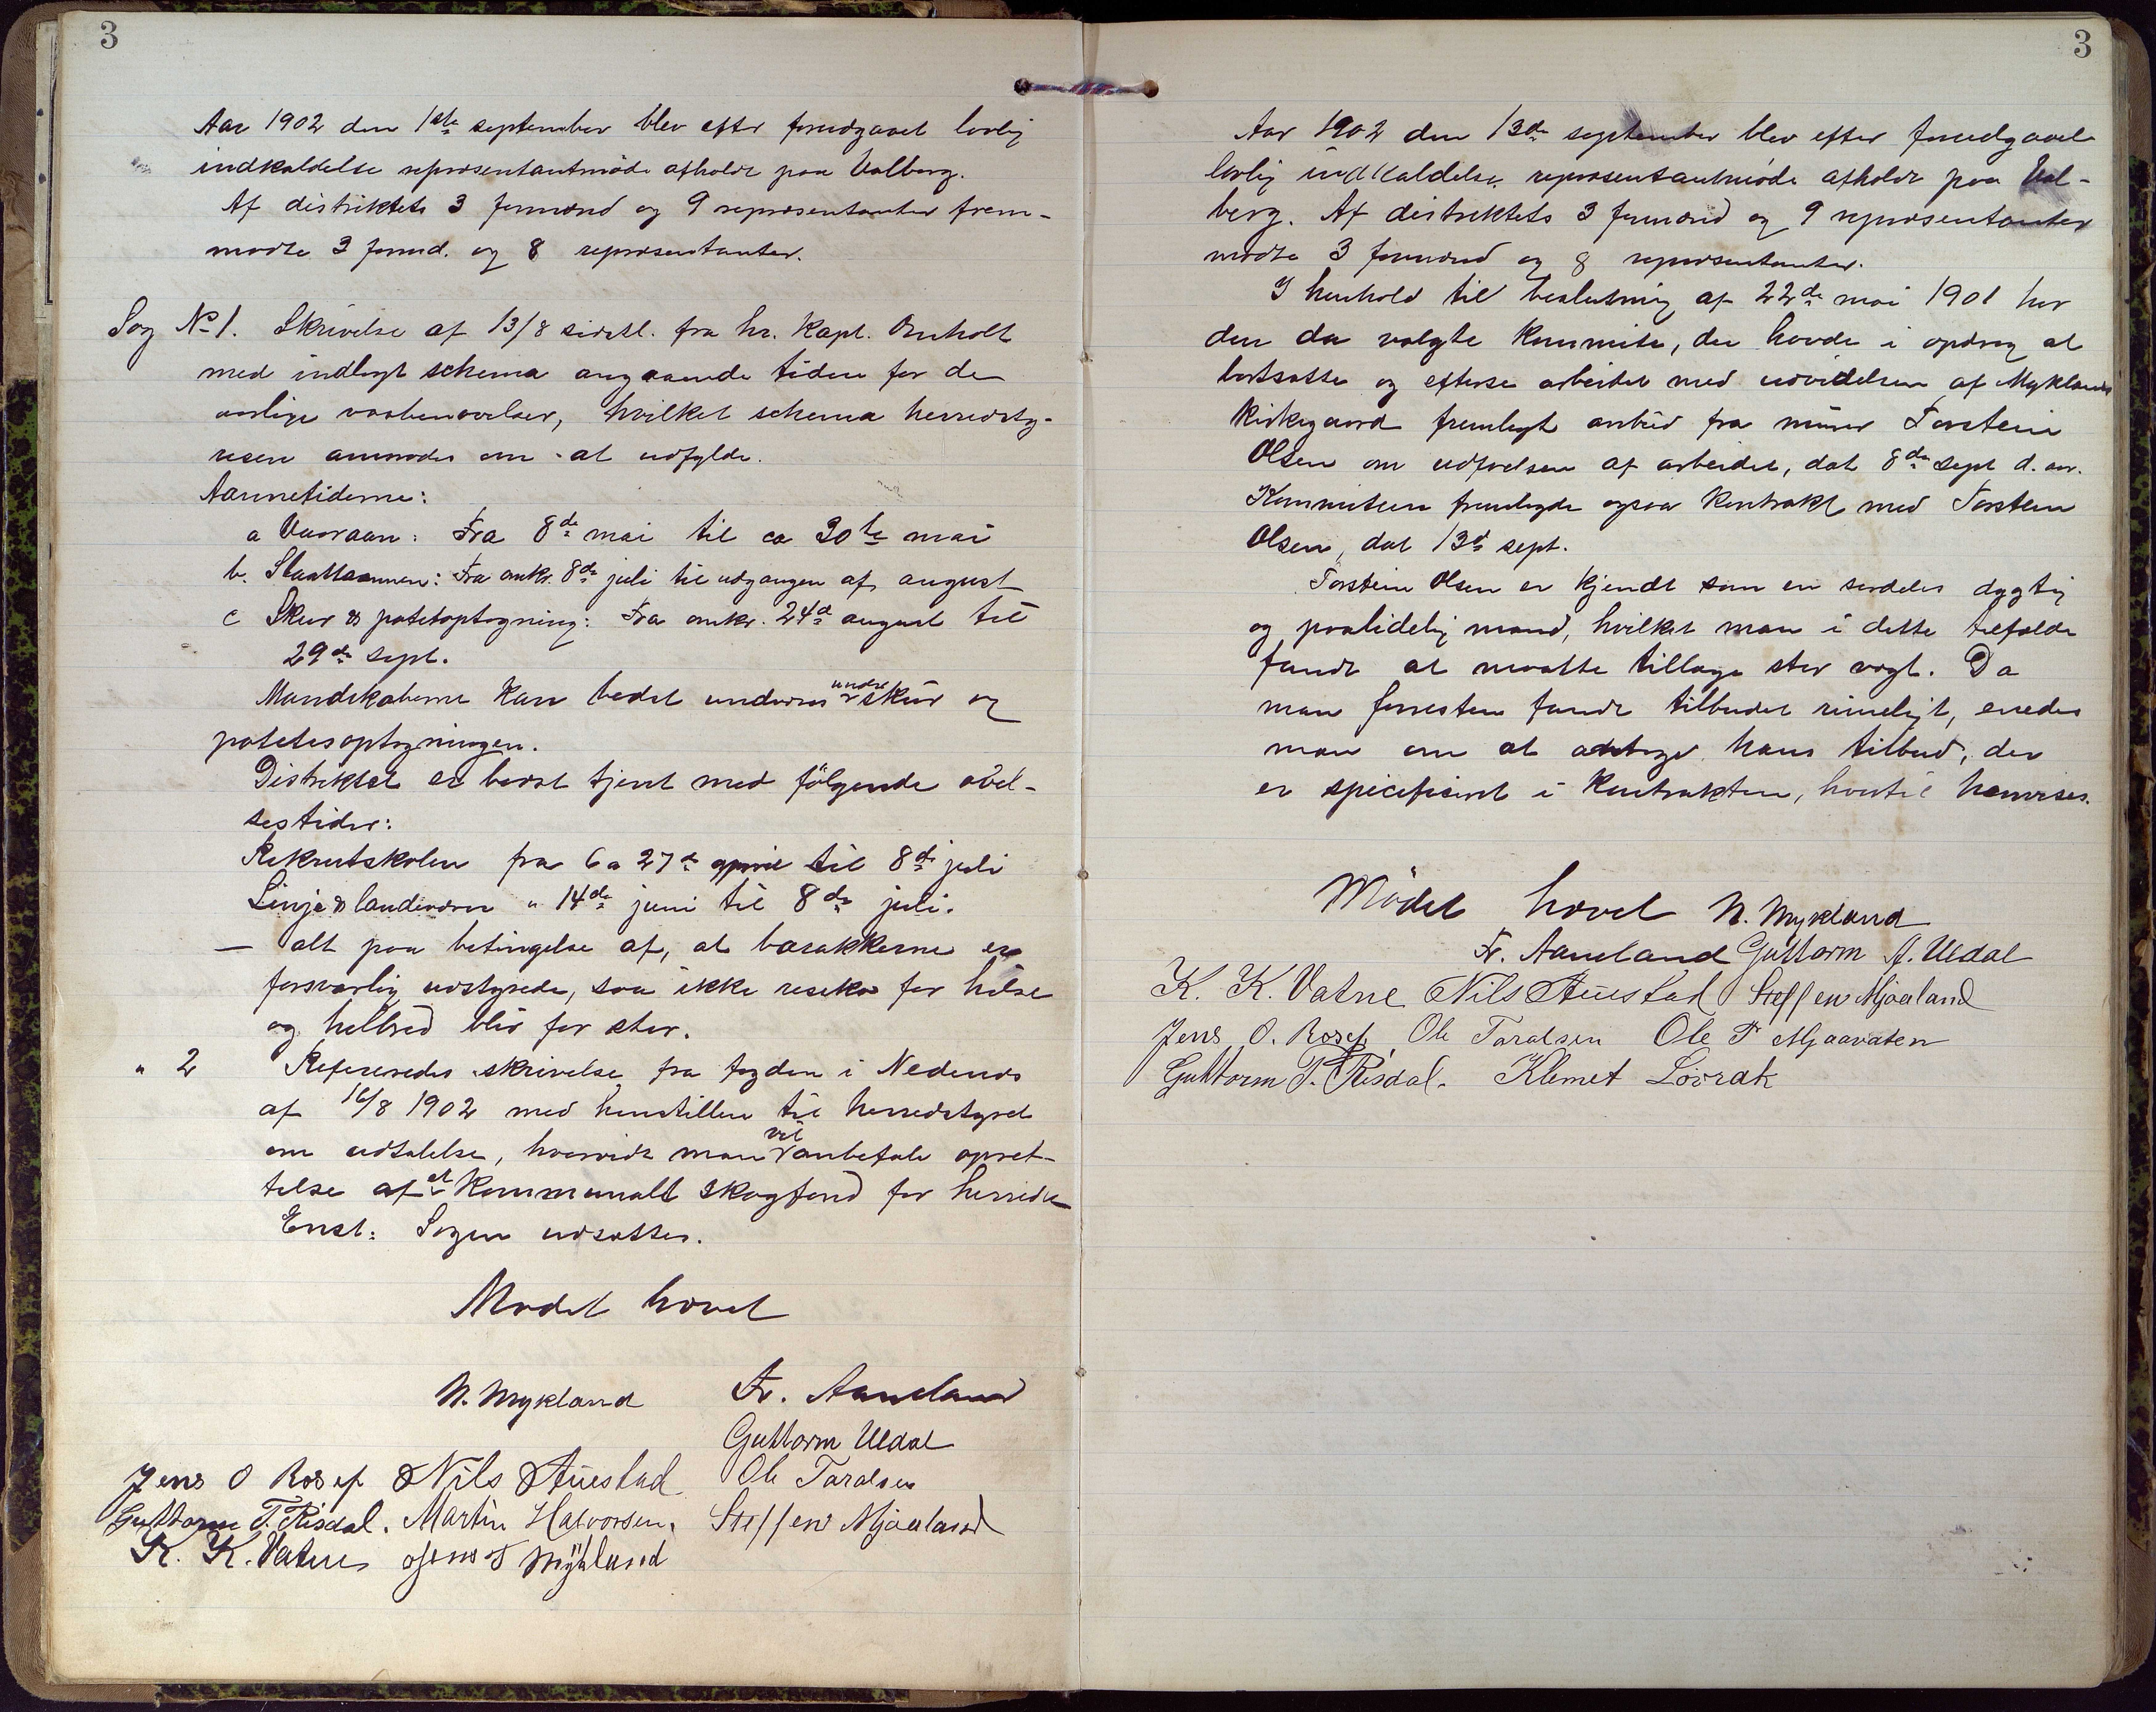 3
Aar 1902 den 1ste september blev efter forudgaaet lovlig
indkaldelse repræsentantmøde afholdt paa Valberg.
Af distriktets 3 formænd og 9 repræsentanter frem-
mødte 3 formd. og 8 repræsentanter.
Sag No 1. Skrivelse af 13/8 sidstl. fra hr. Kapt. Omholt
med indlagt schema angaaende tiden for de
aarlige vaabenøvelser, hvilket schema herredsty-
resen anmodes om at udfylde.
Aannetiderne:
a Vaaraan: Fra 8de mai til ca 30te mai
b. Slaattaannen: Fra omkr. 8de juli til udgangen af august
c Skur & potetoptagning: Fra omkr. 24de august til
29de sept.
Mandskaberne kan bedst undværes under skur og
potetesoptagningen.
Distriktet er bedst tjent med følgende øvel-
sestider:
Rekrutskolen fra 6 a 27de april til 8de juli
Linje & landeværn " 14de juni til 8de juli.
— alt paa betingelse af, at barakkerne er
forsvarlig udstyrede, saa ikke resiko for helse
og helbred blir for stor.
" 2 Refereredes skrivelse fra fogden i Nedenes
af 16/8 1902 med henstillen til herredstyret
om udtalelse, hvorvidt man vil anbefale opret-
telse af et kommunalt skogfond for herredet
Enst: Sagen udsættes.
Mødet hævet
N. Mykland Fr. Aaneland
Guttorm Uldal
Jens O Rosef Nils Auestad Ole Taralsen
Guttorm T. Risdal. Martin Halvorsen. Steffen Mjaaland
K. K. Vatne Jens T Mykland
3
Aar 1902 den 13de september blev efter forudgaaet
lovlig indkaldelse repræsentantmøde afholdt paa Val-
berg. Af distriktets 3 formænd og 9 repræsentanter
mødte 3 formænd og 8 repræsentanter.
I henhold til beslutning af 22de mai 1901 har
den da valgte kommite, der havde i opdrag at
bortsætte og efterse arbeidet med udvidelsen af Myklands
kirkegaard fremlagt anbud fra murer Torstein
Olsen om udførelsen af arbeidet, dat 8de sept d. aar.
Kommiteen fremlagde ogsaa kontrakt med Torstein
Olsen, dat 13de sept.
Torstein Olsen er kjendt som en særdeles dygtig
og paalidelig mand, hvilket man i dette tilfælde
fandt at maatte tillægge stor vægt. Da
man forresten fandt tilbudet rimeligt, enedes
man om at antage hans tilbud, der
er spicificeret i kontrakten, hvortil henvises.
Mödet hævet N. Mykland
Fr. Aaneland Guttorm A. Uldal
K. K. Vatne Nils Auestad Steffen Mjaaland
Jens O. Rosef Ole Taralsen Ole T Mjaavaten
Guttorm T. Risdal. Klemet Løvrak